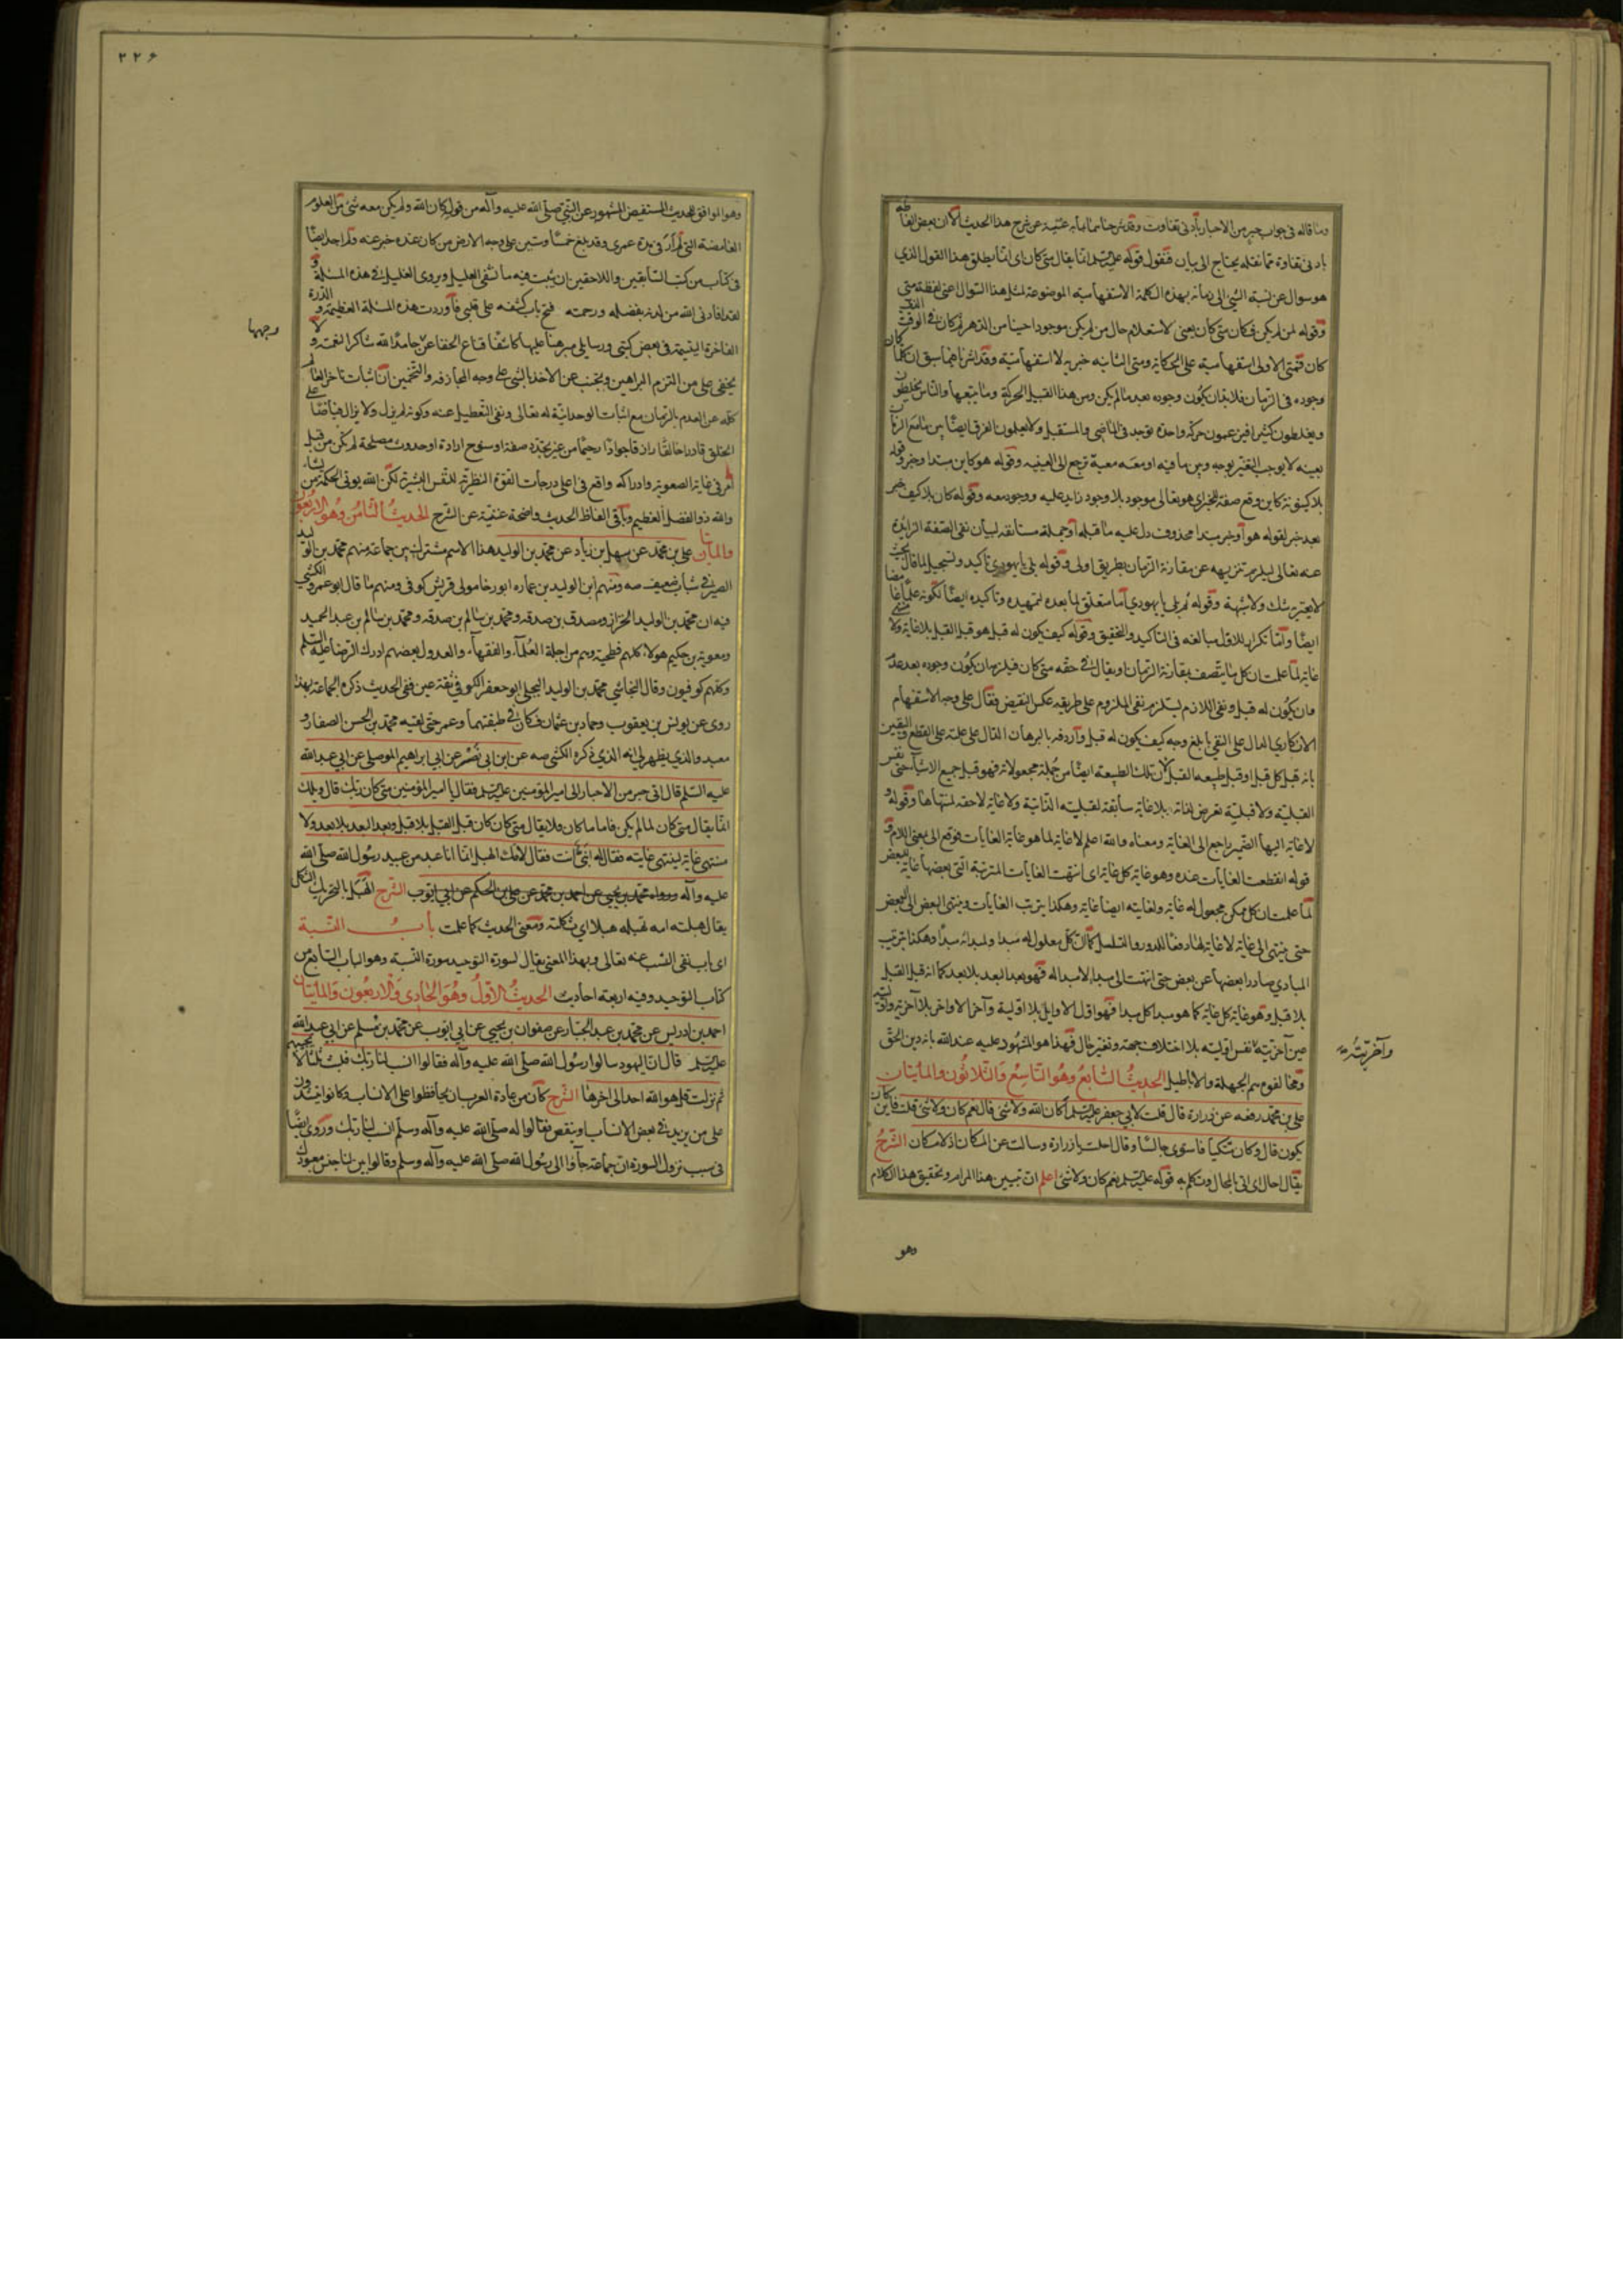 وما قاله فى جواب حبر من الاحبار بأدنى تفاوت وقد شرحناها بما به غنية عن شرح هذا الحديث الا ان بعض الفاظه
بادنى تفاوة مما نقله يحتاج الى بيان فنقول قوله عليه السلم انما يقال متى كان اى انما يطلق هذا القول الذي
هو سوال عن نسبة الشئ الى زمانه بهذه الكلمة الاستفهامية الموضوعة لمثل هذا السوال اعنى لفظة متى
وقوله لمن لم يكن فكان متى كان يعنى لاستعلام حال من لم يكن موجودا حينا من الدهر ثم كان فى الوقت الذى
كان فمتى الاولى استفهامية على الحكاية ومتى الثانية خبرية لا استفهامية وقد اشرنا فيما سبق ان كلما كان
وجوده فى الزمان فلا بد ان يكون وجوده بعد ما لم يكن ومن هذا القبيل الحركة وما يتبعها والناس يخلطون
ويغلطون كثيرا فيزعمون حركة واحدة توجد فى الماضى والمستقبل ولا يعلمون الفرق ايضا بين ما مع الزمان
بعينه لا يوجب التغير بوجه وبين ما فيه او معه معية ترجع الى الفيئية وقوله هو كاين مبتدا وخبر وقوله
بلا كينونة كاين وقع صفة للخبر اى هو تعالى موجود بلا وجود زايد عليه ووجود معه وقوله كان بلا كيف خبر
بعد خبر لقوله هو أو خبر مبتدا محذوف دل عليه ما قبله أو جملة مستانفة لبيان نفى الصفة الزايدة
عنه تعالى ليلزم تنزيهه عن مقارنة الزمان بطريق اولى وقوله بلى يا يهودي تاكيد وتسجيل لما قال بحيث
لا يعتريه شك ولا شبهة وقوله ثم بلى يا يهودي اما متعلق بما بعده لتمهيده وتاكيده ايضا لكونه علما غامضا
ايضا واما تكرار للاول مبالغه فى التاكيد والتحقيق وقوله كيف يكون له قبل هو قبل القبل بلا غاية ولا منتهى
غاية لما علمت ان كل ما يتصف بمقارنة الزمان او يقال فى حقه متى كان فيلزمه ان يكون وجوده بعد عدم
وان يكون له قبل ونفى اللازم يستلزم نفى الملزوم على طريقه عكس النقيض فقال على وجه الاستفهام
الانكارى الدال على النفى بابلغ وجه كيف يكون له قبل وأردفه بالبرهان الدال على علته على القطع واليقين
بانه قبل كل قبل او قبل طبيعه القبل لان تلك الطبيعه ايضا من جملة مجعولاته فهو قبل جميع الاشيا حتى نفس
القبليه ولا قبلية تعرض لذاته بلا غاية سابقة لقبليته الذاتية ولا غاية لاحقه لمنتهاها وقوله و
لا غاية اليها الضمير راجع الى الغاية ومعناه والله اعلم لا غاية لما هو غاية الغايات فوقع الى بمعنى اللام و
قوله انقطعت الغايات عنده وهو غاية كل غاية اى انتهت الغايات المترتبة التى بعضها غاية للبعض
لما علمت ان كل ممكن مجعول له غاية ولغايته ايضا غاية وهكذا يترتب الغايات وينتهى البعض الى البعض
حتى ينتهى الى غاية لا غاية لها دفعا للدور والتسلسل كما ان كل معلول له مبدا ولمبدائه مبدأ وهكذا يترتب
المبادي صادرا بعضها عن بعض حتى انتهت الى مبدا لا مبدا له فهو بعد البعد بلا بعد كما انه قبل القبل
بلا قبل وهو غاية كل غاية كما هو مبدا كل مبدا فهو اول الاوايل بلا اولية وآخر الاواخر بلا آخرية
عين آخريته نفس اوليته بلا اختلاف جهة وتغير حال فهذا هو المشهود عليه عند الله بانه دين الحق
وما خالفه وسم الجهلة والاباطيل الحديث السابع وهو التاسع والثلاثون والمايتان
على بن محمد رفعه عن زرارة قال قلت لابي جعفر عليه السلم أكان الله ولا شئ قال نعم كان ولا شئ قلت فاين كان
يكون قال وكان متكيا فاستوى جالسا وقال احلت يا زرارة وسالت عن المكان اذ لا مكان الشرح
يقال احال اى اتى بالمحال وتكلم به قوله عليه السلم نعم كان ولا شئ اعلم ان تبيين هذا المرام وتحقيق هذا الكلام
وهو
٢٢۶
وهو الموافق للحديث المستفيض المشهور عن النبي صلى الله عليه وآله من قوله كان الله ولم يكن معه شئ من العلوم
الغامضة التى لم أر فى مدة عمرى وقد بلغ خمسا وستين على وجه الارض من كان عنده خبر عنه ولم اجد ايضا
فى كتاب من كتب السابقين واللاحقين ان يثبت فيه ما تشفى العليل ويروى الغليل فى هذه المسئلة و
لقد افادنى الله من لدنه بفضله ورحمته فتح باب كشفه على قلبى فأوردت هذه المسئلة العظيمة و الدرة
الفاخرة اليتيمة فى بعض كتبى ورسايلى مبرهنا عليها كاشفا قناع الخفا عن وجهها حامدا لله شاكرا لنعمته ولا
يخفى على من التزم البراهين ويجتنب عن الاخذ بالشئ على وجه المجازفه والتخمين ان اثبات تاخر العالم
كله عن العدم بالزمان مع اثبات الوحدانية له تعالى ونفى التعطيل عنه وكونه لم يزل ولا يزال فياضا على
الخلق قادرا خالقا رازقا جوادا رحيما من غير تجدد صفة او سنوح ارادة او حدوث مصلحة لم يكن من قبل
أمر فى غاية الصعوبه وادراكه واقع فى اعلى درجات القوة النظرية للنفس البشرية لكن الله يوتى الحكمة من يشاء
والله ذو الفضل العظيم وباقى الفاظ الحديث واضحة غنية عن الشرح الحديث الثامن وهو الاربعون
والمايتان على بن محمد عن سهل بن زياد عن محمد بن الوليد هذا الاسم مشترك بين جماعة منهم محمد بن الوليد
الصيرفى شباب ضعيف صه ومنهم ابن الوليد بن عماره ابو رخا مولى قريش كوفى ومنهم ما قال ابو عمرو الكشى
فيه ان محمد بن الوليد الخزاز ومصدق بن صدقه ومحمد بن سالم بن صدقه ومحمد بن سالم بن عبد الحميد
ومعوية بن حكيم هولاء كلهم فطحية وهم من اجلة العلماء والفقهاء والعدول بعضهم ادرك الرضا عليه السلم
وكلهم كوفيون وقال النجاشى محمد بن الوليد البجلى ابو جعفر الكوفى ثقة عين نقى الحديث ذكره الجماعة بهذا
روى عن يونس بن يعقوب وحماد بن عثمان فكان فى طبقتهما وعمر حتى لقيه محمد بن الحسن الصفار و
سعد والذي يظهر لى انه الذي ذكره الكشى صه عن ابن ابى نصر عن ابى ابراهيم الموصلى عن ابى عبد الله
عليه السلم قال اتى حبر من الاحبار الى امير المؤمنين عليه السلم فقال يا امير المؤمنين متى كان ربك قال ويلك
انما يقال متى كان لما لم يكن فاما ما كان فلا يقال متى كان كان قبل القبل بلا قبل وبعد البعد بلا بعد ولا
منتهى غاية لينتهى غايته فقال له انبى انت فقال لامك الهبل انما انا عبد من عبيد رسول الله صلى الله
عليه وآله ورواه محمد بن يحيى عن احمد بن محمد عن على بن الحكم عن ابى ايوب الشرح الهبل بالتحريك الثكل
يقال هبلته امه تهبله هبلا اى ثكلته ومعنى الحديث كما علمت باب النسبة
اى باب نفى النسب عنه تعالى وبهذا المعنى يقال لسورة التوحيد سورة النسبة وهو الباب السابع من
كتاب التوحيد وفيه اربعة احاديث الحديث الاول وهو الحادى والاربعون والمايتان
احمد بن ادريس عن محمد بن عبد الجبار عن صفوان بن يحيى عن ابى ايوب عن محمد بن مسلم عن ابى عبد الله
عليه السلم قال ان اليهود سالوا رسول الله صلى الله عليه وآله فقالوا انسب لنا ربك فلبث ثلثا لا يجيبهم
ثم نزلت قل هو الله احد الى اخرها الشرح كان من عادة العرب ان يحافظوا على الانساب وكانوا يتشددون
على من يزيد فى بعض الانساب او ينقص فقالوا له صلى الله عليه وآله وسلم انسب لنا ربك وروى ايضا
فى سبب نزول السورة ان جماعة جاؤا الى رسول الله صلى الله عليه وآله وسلم وقالوا بين لنا جنس معبودك